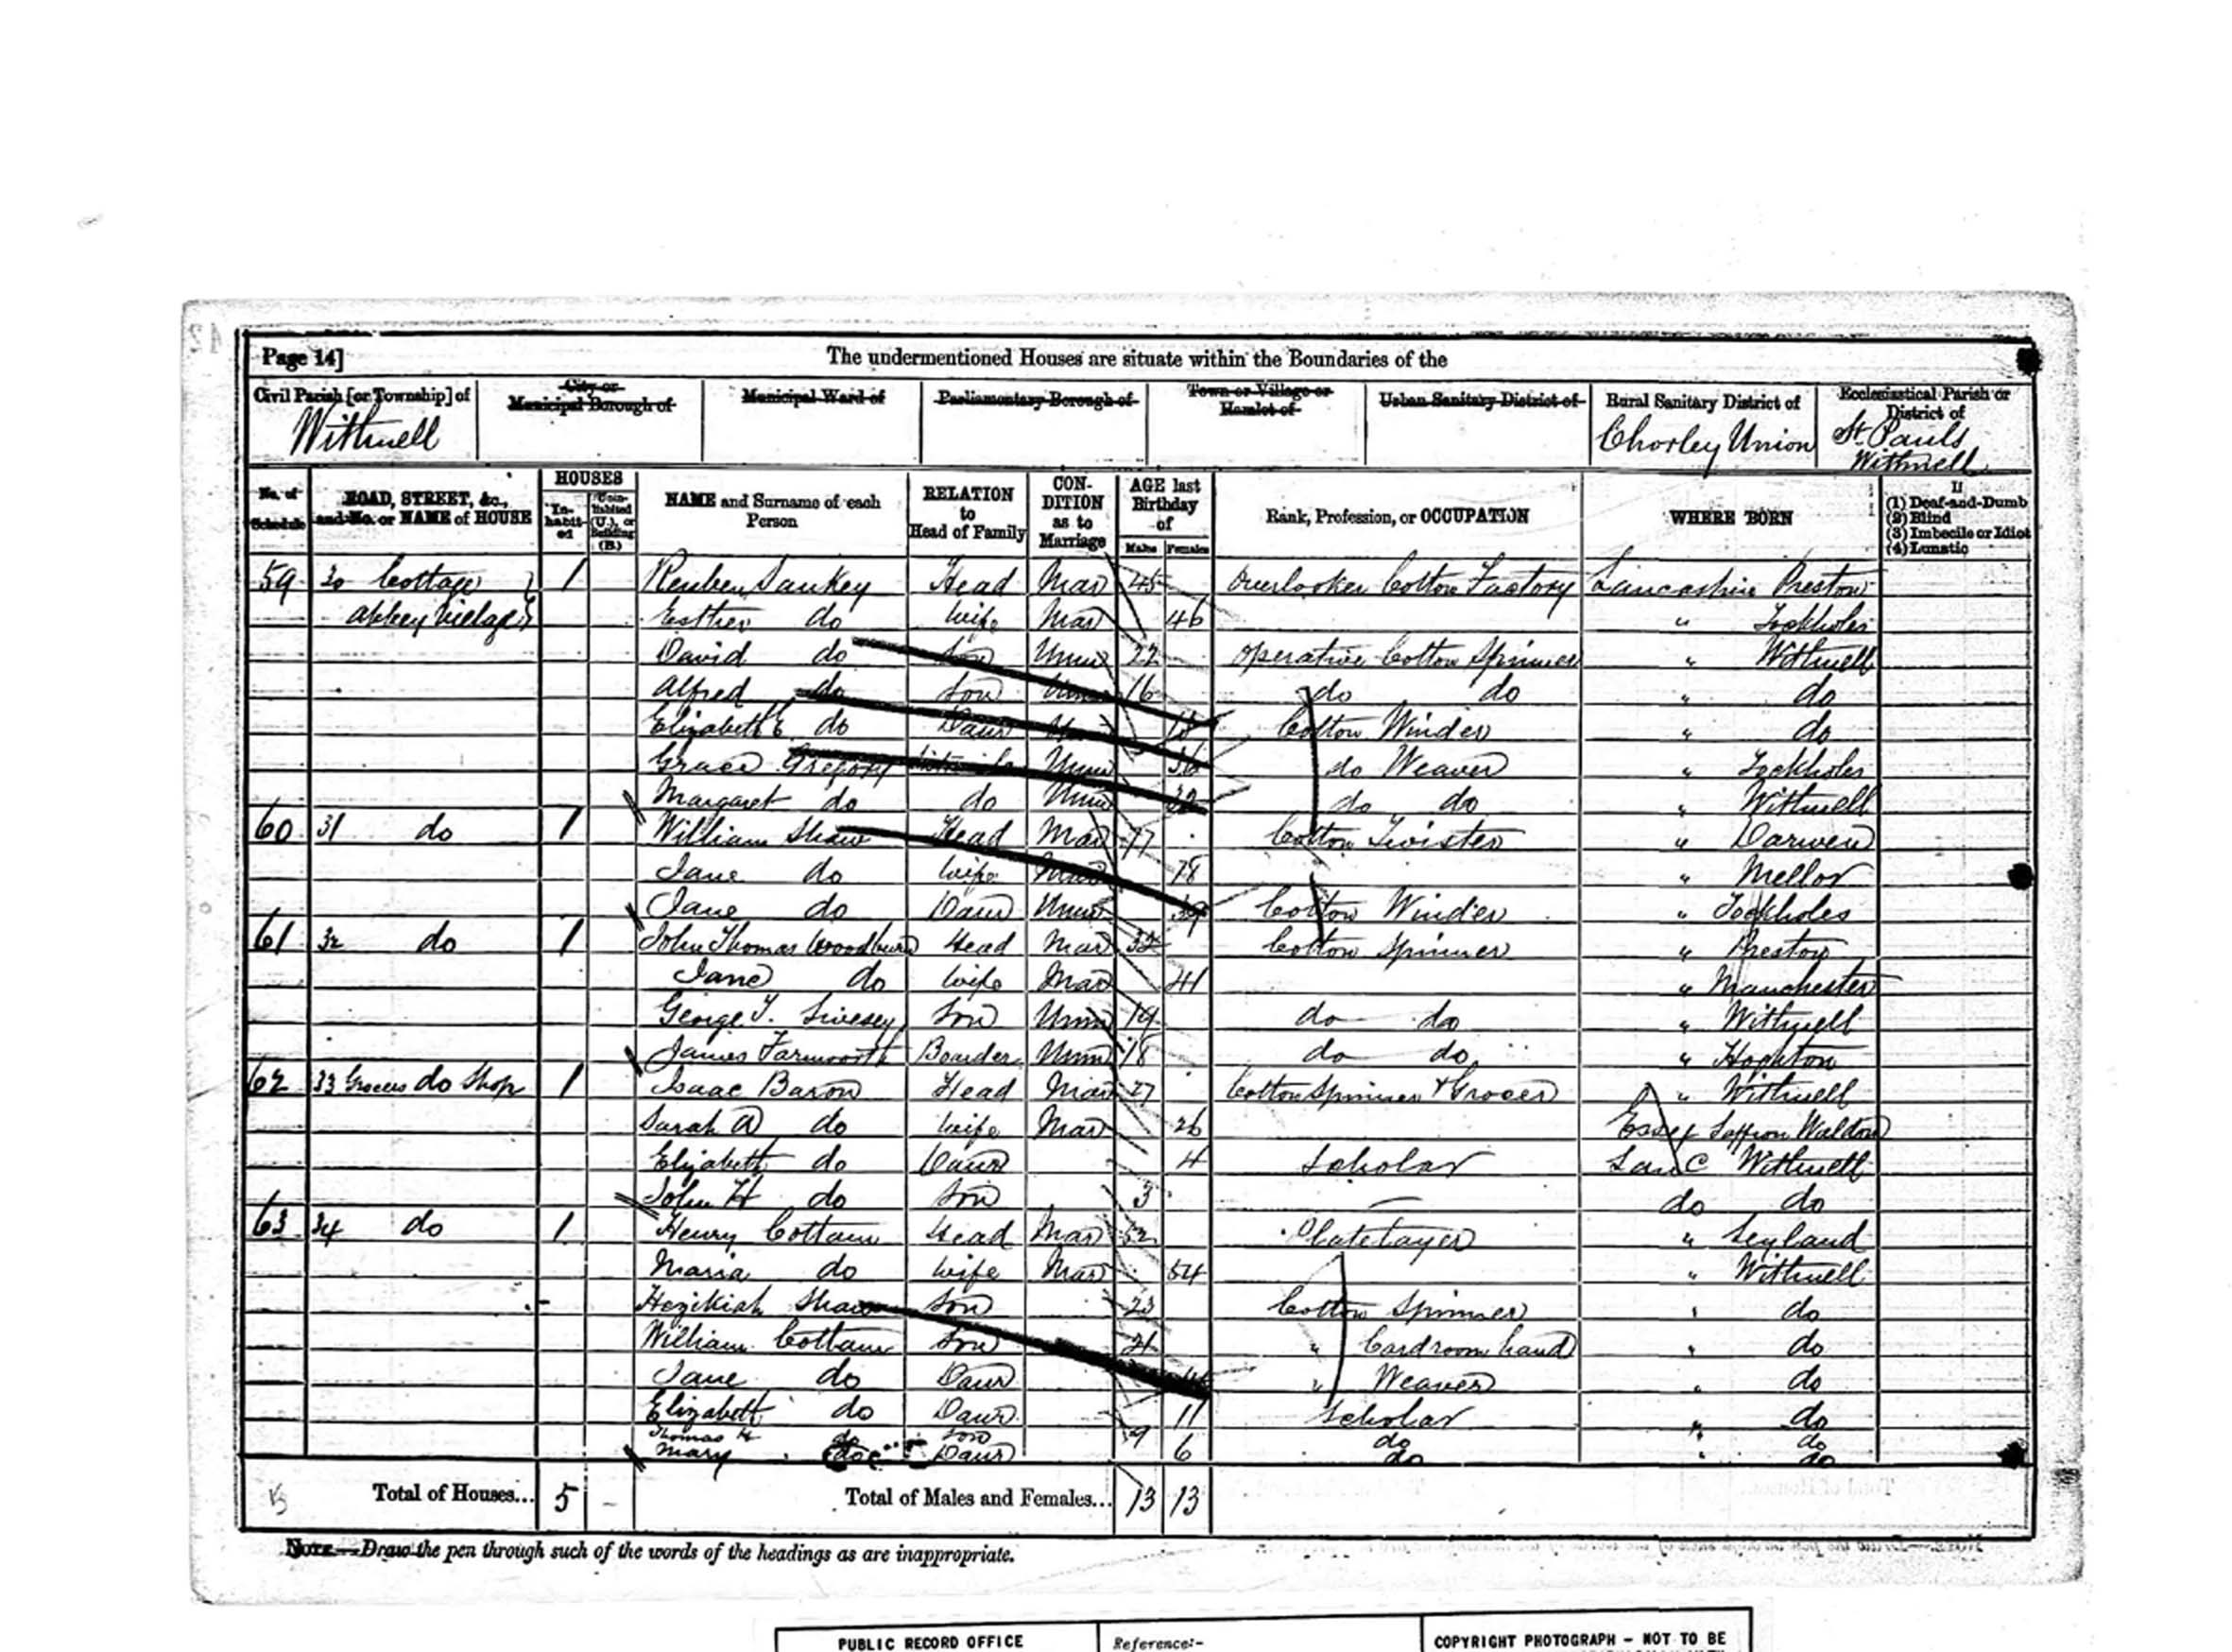 Page 14]
The undermentioned Houses are situate within the Boundaries of the
Civil Parish [or Township] of
City or Municipal Borough of
Municipal Ward of
Parliamentary Borough of
Town or Village or Hamlet of
Urban Sanitary District of
Rural Sanitary District of
Ecclesiastical Parish or District of
Withnell
Chorley Union
St. Pauls Withnell
No. of Schedule
ROAD, STREET, &c., and No. or NAME of HOUSE
HOUSES
In-habit-ed
Unin-habited (U.), or Building (B.)
NAME and Surname of each Person
RELATION to Head of Family
CON-DITION as to Marriage
AGE last Birthday of
Males Females
Rank, Profession, or OCCUPATION
WHERE BORN
If
(1) Deaf-and-Dumb
(2) Blind
(3) Imbecile or Idiot
(4) Lunatic
59 30 Cottage 1 Reuben Sankey Head Mar 45 Overlooker Cotton Factory Lancashire Preston
Abbey Village Esther do wife Mar 46 " Tockholes
David do Son Unm 22 Operative Cotton Spinner " Withnell
Alfred do Son Unm 16 do do " do
Elizabeth E do Daur Cotton Winder " do
Grace Gregory Unm 36 do Weaver " Tockholes
Margaret do do Unm 32 do do " Withnell
60 31 do 1 William Shaw Head Mar 77 Cotton Twister " Darwen
Jane do wife Mar 78 " Mellor
Jane do Daur Unm 39 Cotton Winder " Tockholes
61 32 do 1 John Thomas Woodburn Head Mar 32 Cotton Spinner " Preston
Jane do wife Mar 41 " Manchester
George T. Livesey Son Unm 19 do do " Withnell
James Farnworth Boarder Unm 18 do do " Hoghton
62 33 Grocers do Shop 1 Isaac Baron Head Mar 27 Cotton Spinner & Grocer " Withnell
Sarah A do wife Mar 26 Essex Saffron Waldon
Elizabeth do Daur 4 Scholar Lanc Withnell
John H do Son 3 — do do
63 34 do 1 Henry Cottam Head Mar 52 Platelayer " Leyland
Maria do wife Mar 54 " Withnell
Hezikiah Shaw Son 23 Cotton Spinner " do
William Cottam Son 21 " Cardroom hand " do
Jane do Daur " Weaver " do
Elizabeth do Daur 11 Scholar " do
Thomas H do Son 9 do " do
Mary do Daur 6 do " do
Total of Houses... 5 –
Total of Males and Females... 13 13
NOTE.—Draw the pen through such of the words of the headings as are inappropriate.
PUBLIC RECORD OFFICE
Reference:-
COPYRIGHT PHOTOGRAPH - NOT TO BE